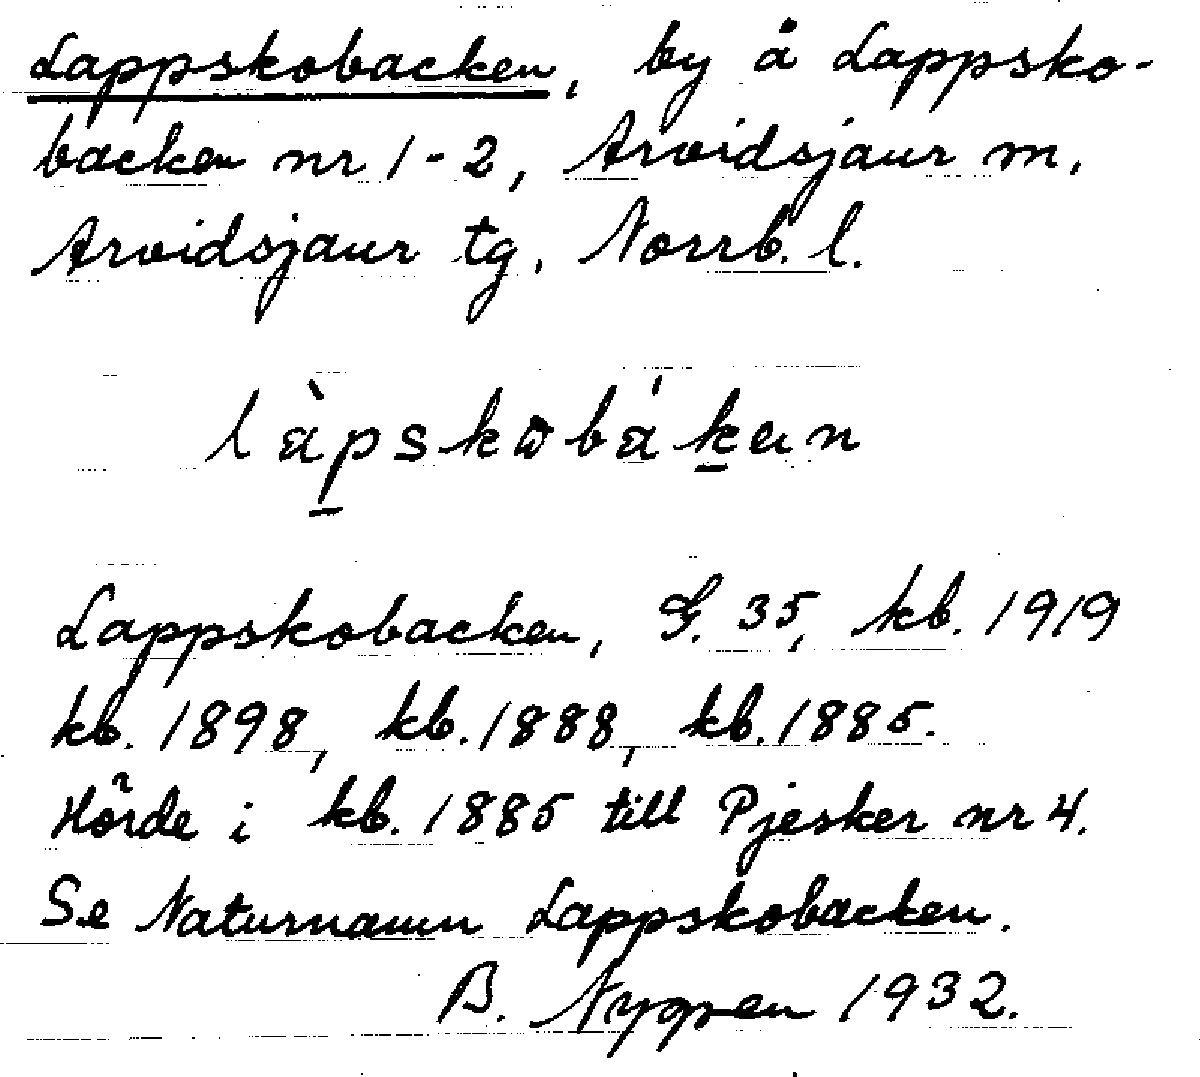 Lappskobacken, by å Lappsko-
backen nr 1-2, Arvidsjaur sn.
Arvidsjaur tg. Norrb. l.
Lappskobacken, G. 35, kb. 1919
kb. 1898, kb. 1888, kb. 1885.
Hörde i kb. 1885 till Pjesker nr 4.
Se Naturnamn Lappskobacken.
B. 1932.